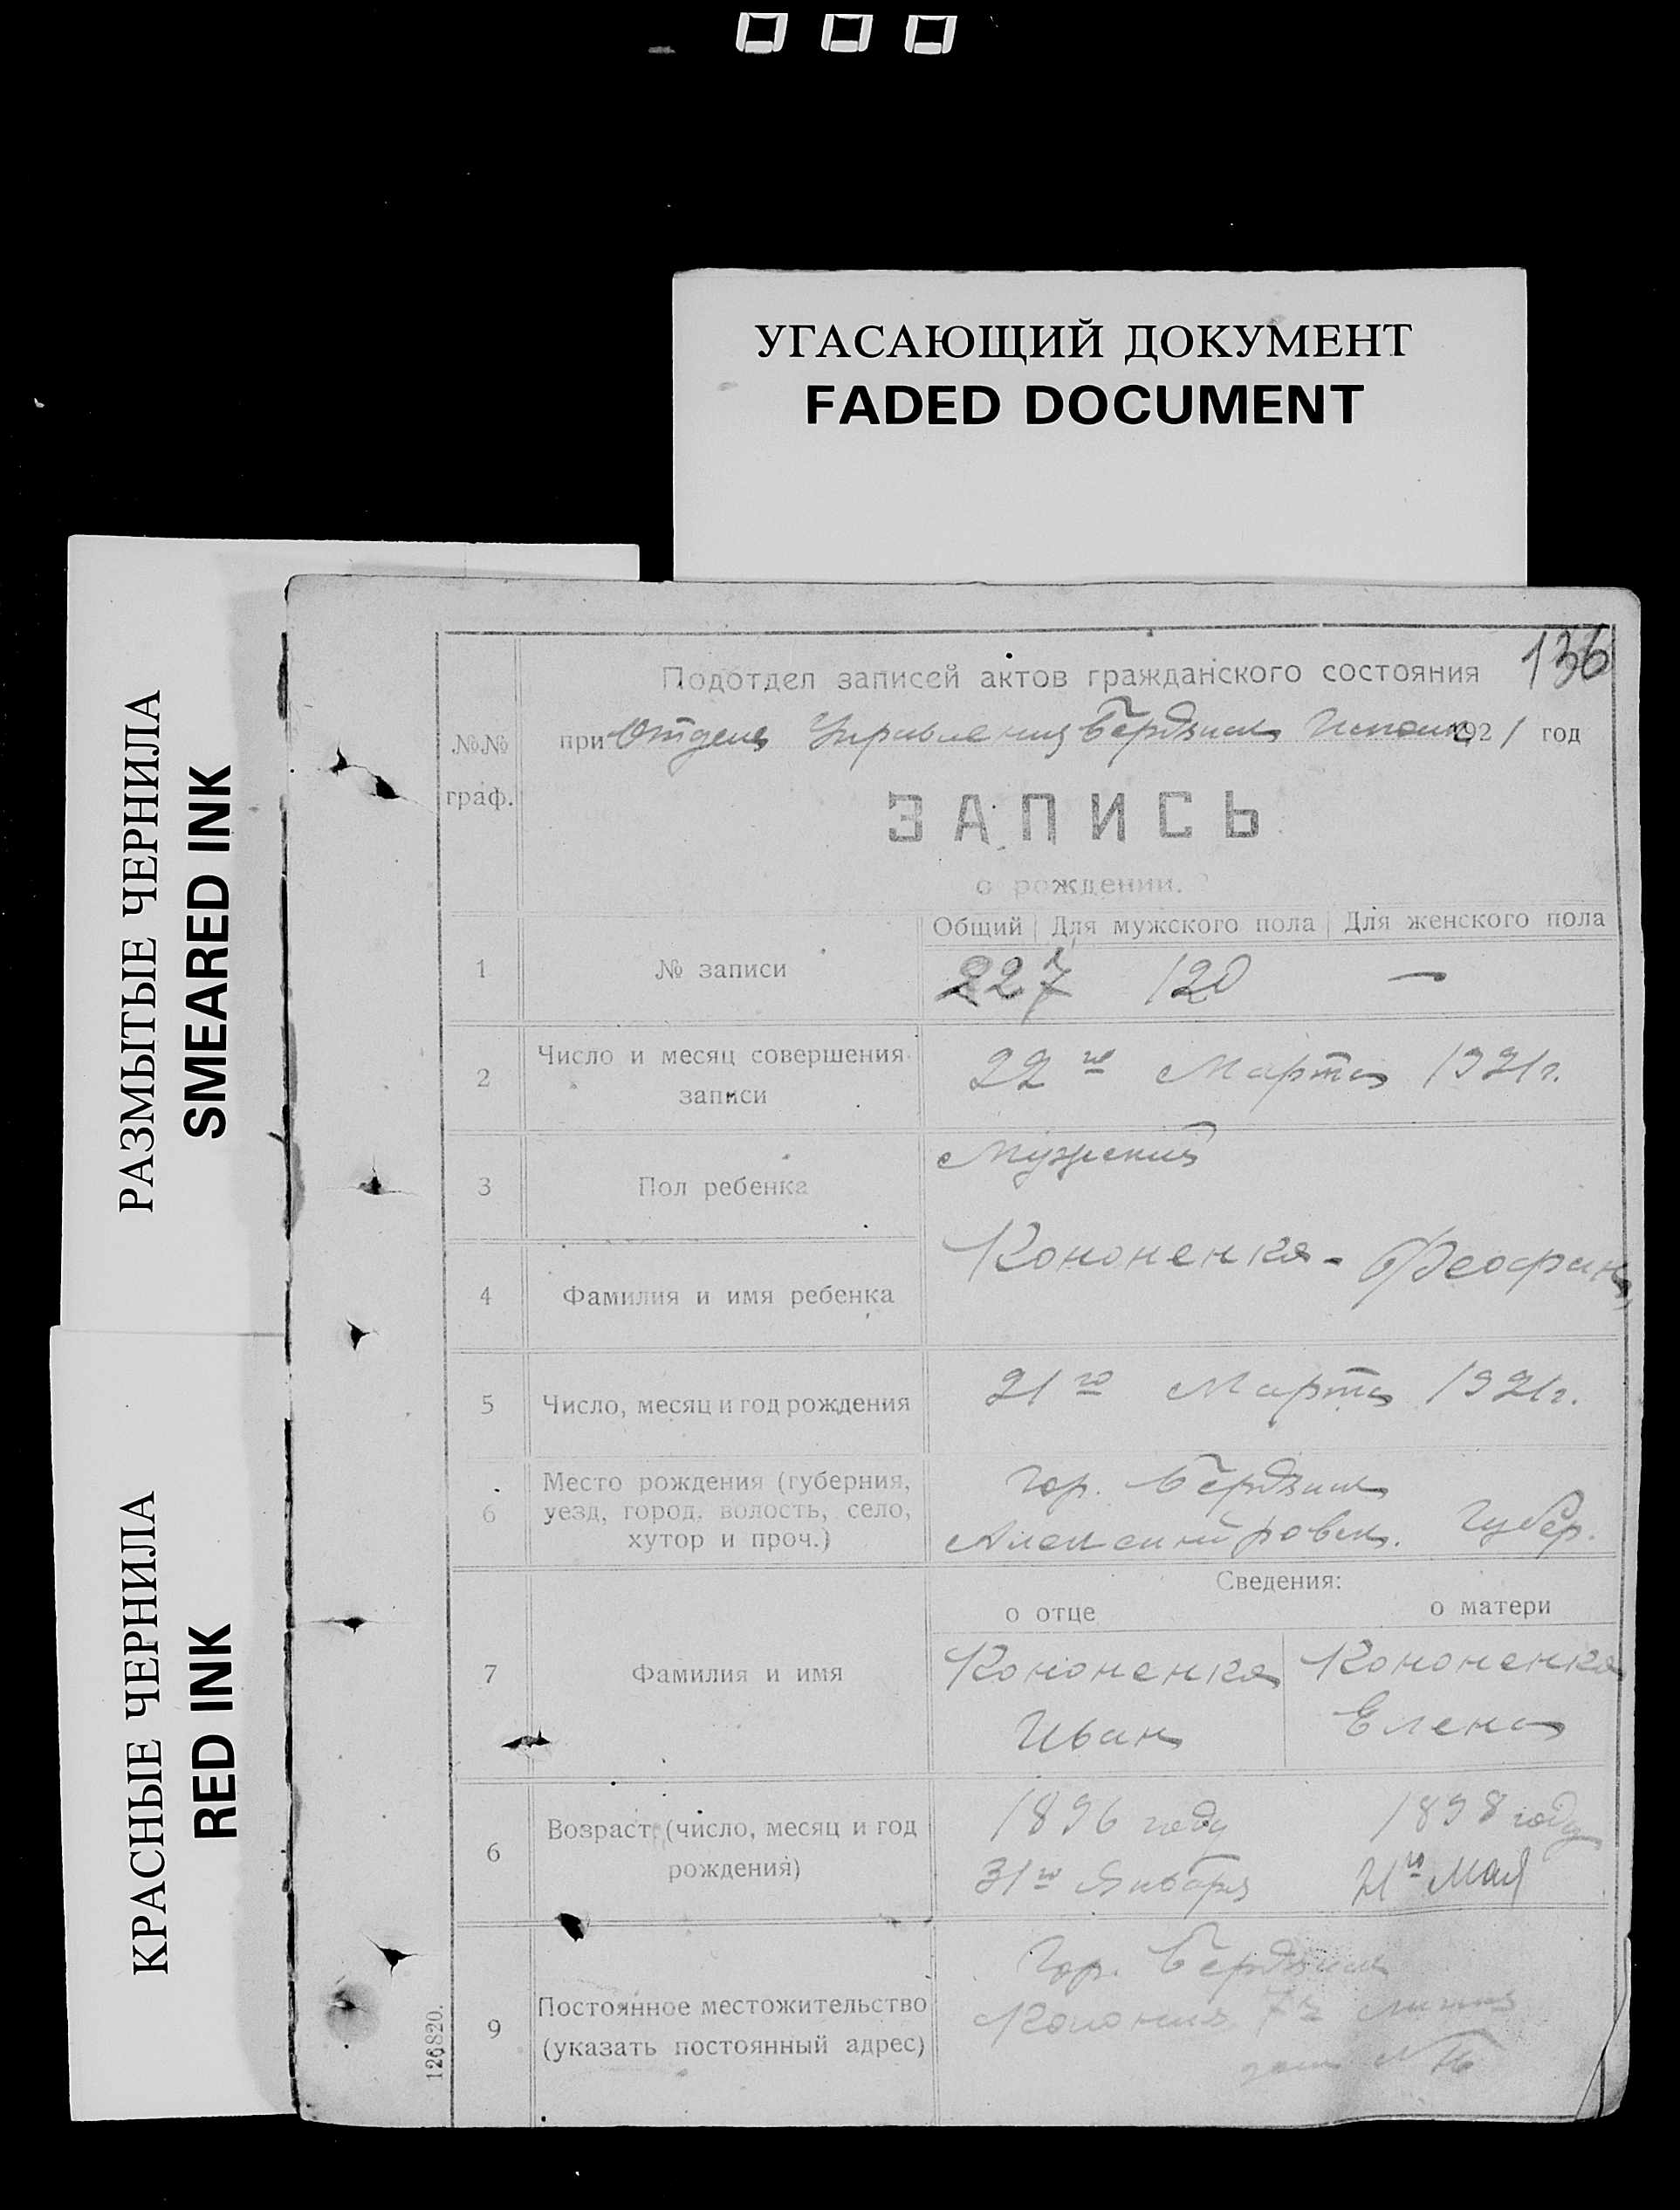 УГАСАЮЩИЙ ДОКУМЕНТ
FADED DOCUMENT
РАЗМЫТЫЕ ЧЕРНИЛА
SMEARED INK
КРАСНЫЕ ЧЕРНИЛА
RED INK
136
Подотдел записей актов гражданского состояния
№№ граф.
при Отделе Управления Бердянск 1921 год
ЗАПИСЬ
о рождении.
Общий Для мужского пола Для женского пола
1 № записи 227 120 —
2 Число и месяц совершения записи 22го Марта 1921г.
3 Пол ребенка Мужский
4 Фамилия и имя ребенка Кононенко - Феофан
5 Число, месяц и год рождения 21го Марта 1921г.
6 Место рождения (губерния, уезд, город, волость, село, хутор и проч.) Гор. Бердянск
Александровск. Губер.
Сведения:
о отце о матери
7 Фамилия и имя Кононенко Кононенко
Иван Елена
6 Возраст (число, месяц и год рождения) 1896 году 1898 году
31го Января 21го Мая
9 Постоянное местожительство (указать постоянный адрес) Гор. Бердянск
Колония 7я линия
дом №
126820.